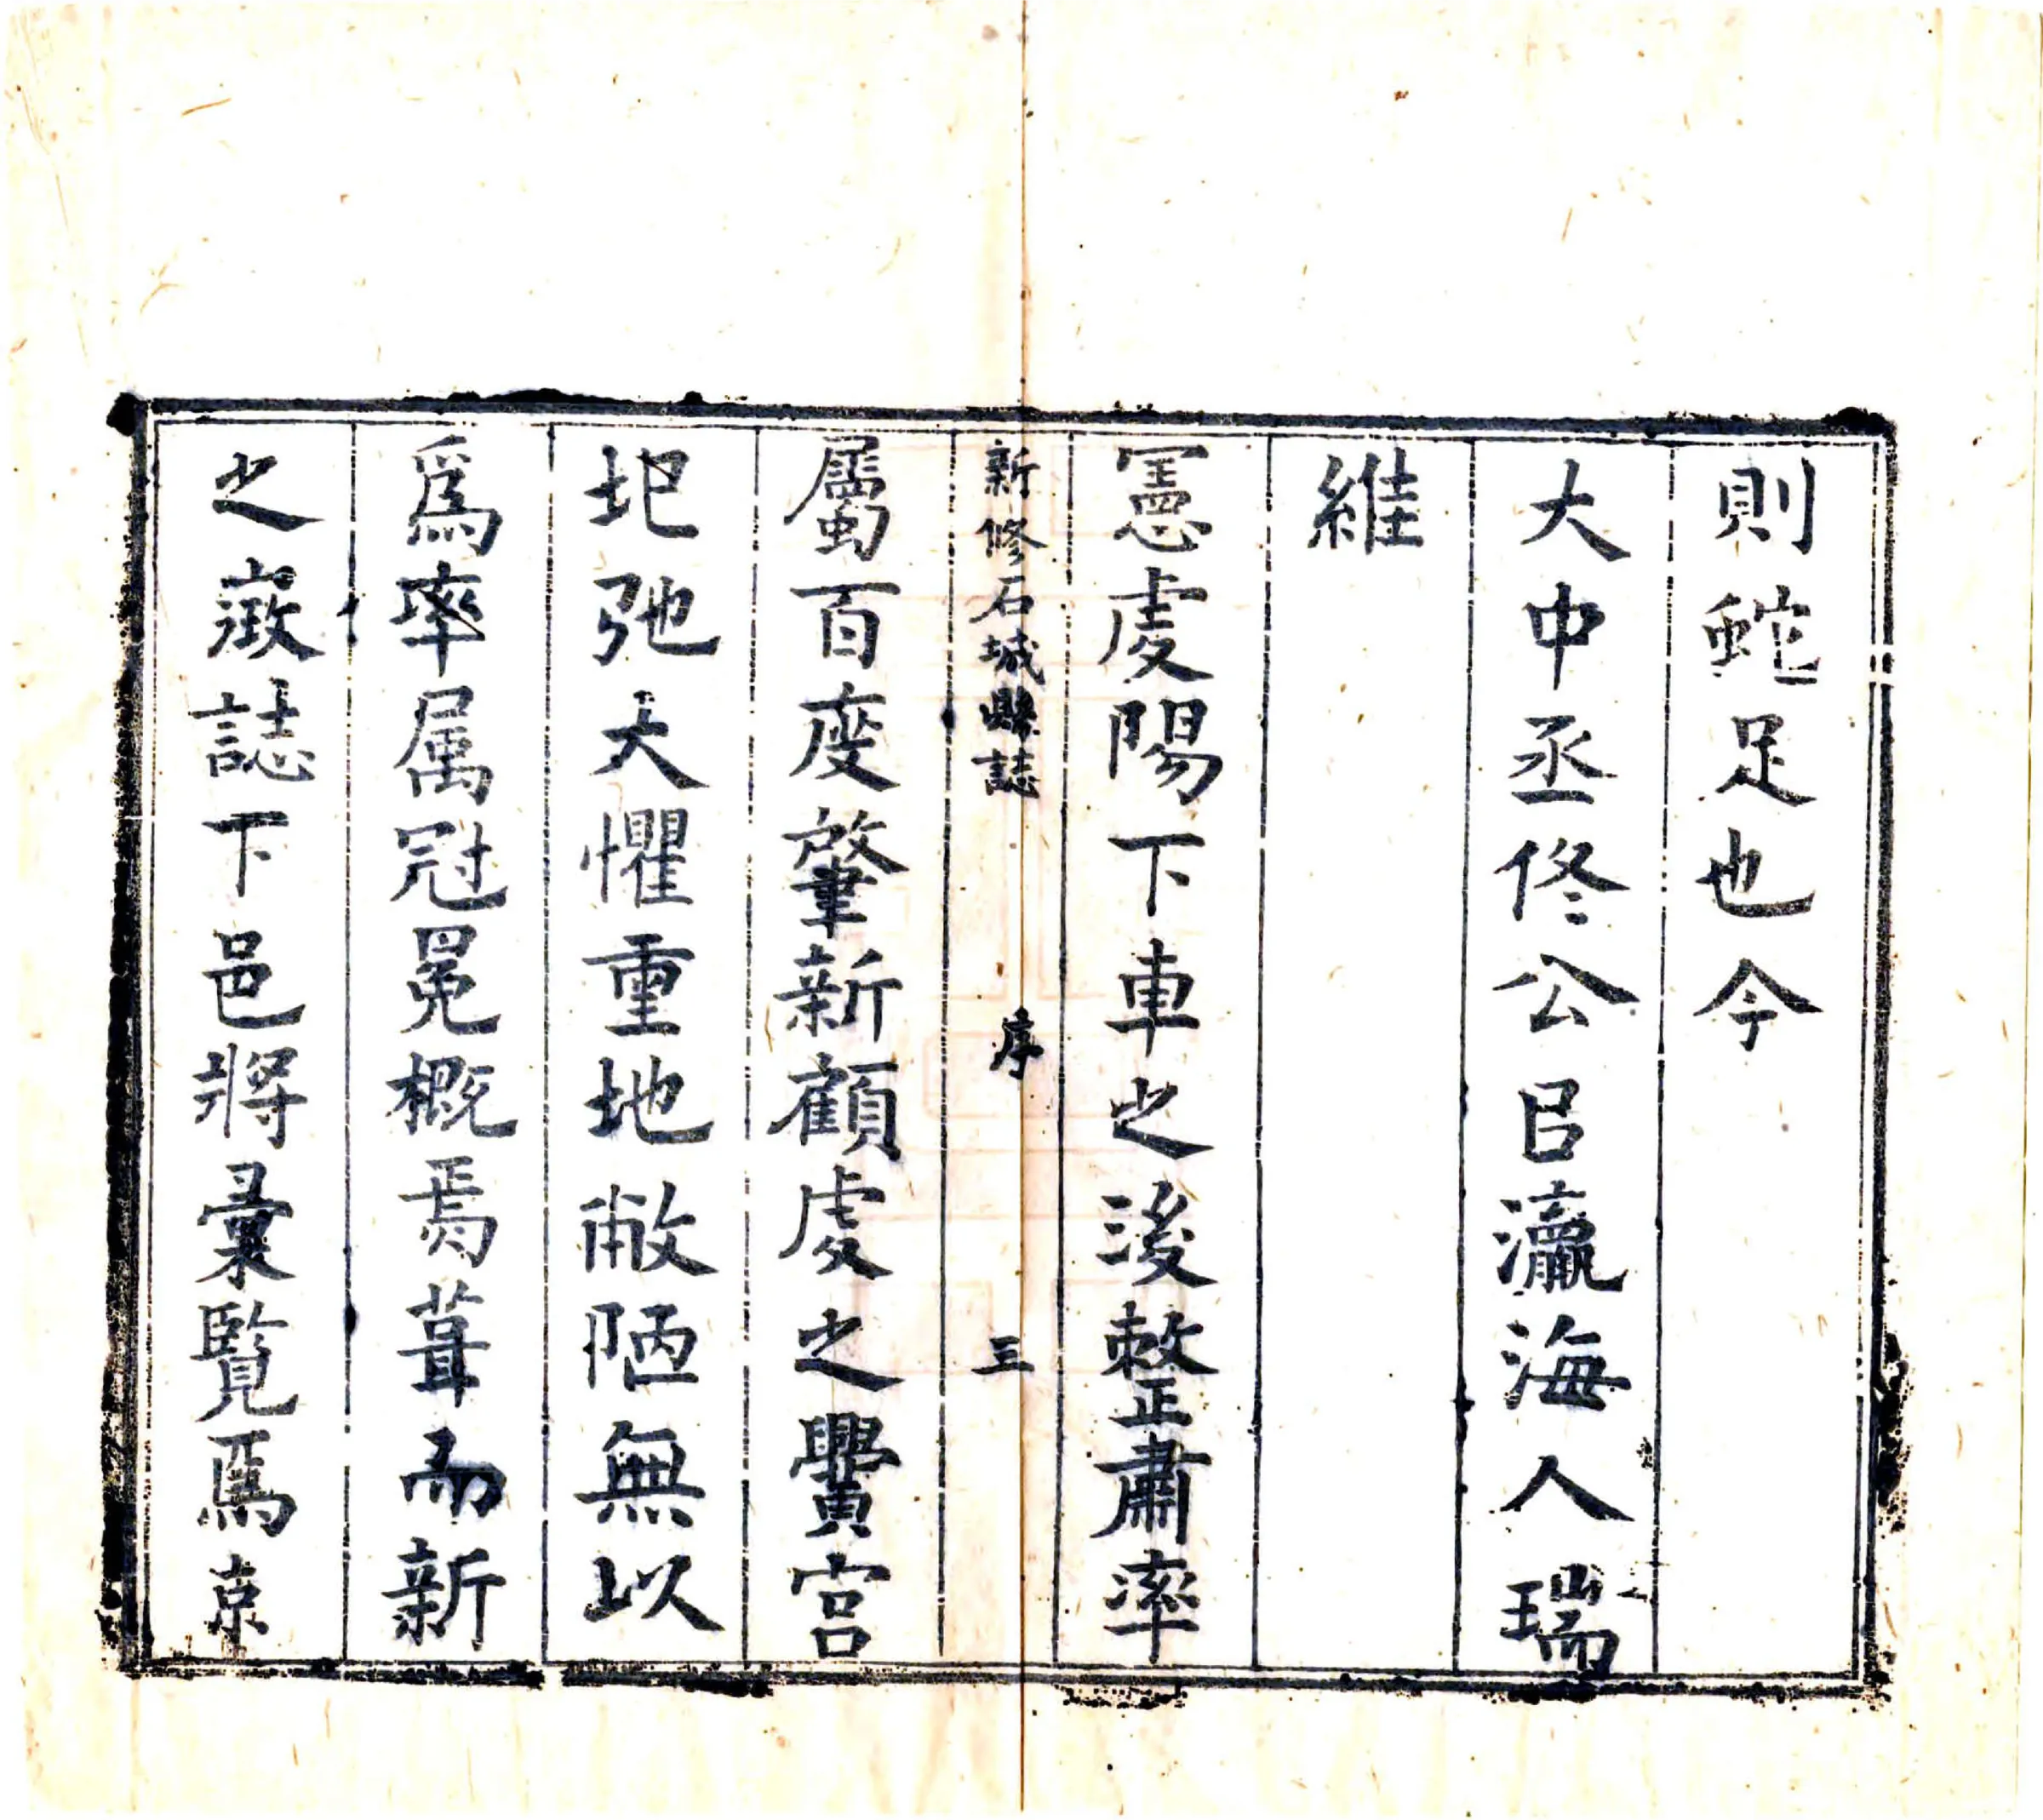 則蛇足也今
大中丞佟公㠯瀛海人瑞
維
憲虔陽下車之後整肅率
新修石城縣誌 序 三
屬百度肇新顧虔之黌宮
圮弛大懼重地敝陋無以
爲率属冠冕概焉葺而新
之嶶誌下邑將彙覧焉京